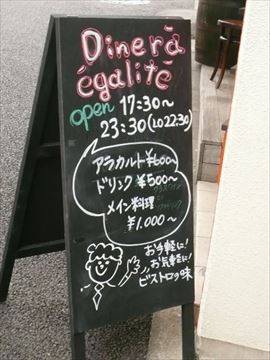 Diner à
égalité
open 17:30~
23:30(LO22:30)
アラカルト¥600~
ドリンク¥500~
メイン料理
¥1.000~
お手軽に!
お気軽に!
ビストロの味